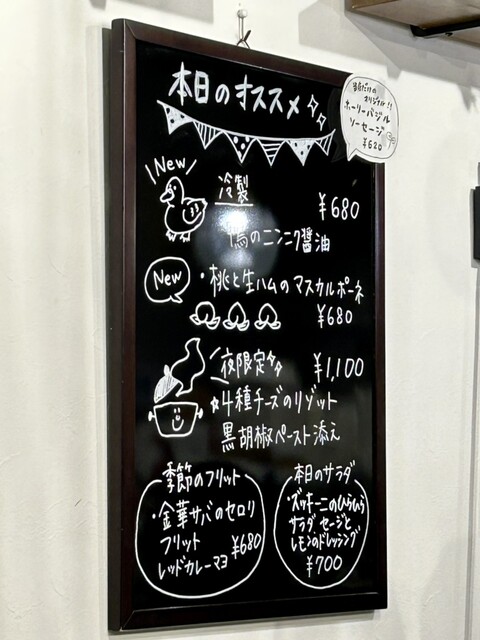 本日のオススメ
当店だけの
オリジナル!!
ホーリーバジル
ソーセージ
¥620
New
冷製
¥680
鴨のニンニク醤油
New
・桃と生ハムのマスカルポーネ
¥680
夜限定
¥1,100
☆4種チーズのリゾット
黒胡椒ペースト添え
季節のフリット
・金華サバのセロリ
フリット
レッドカレーマヨ ¥680
本日のサラダ
・ズッキーニのひらひら
サラダ セージと
レモンのドレッシング
¥700